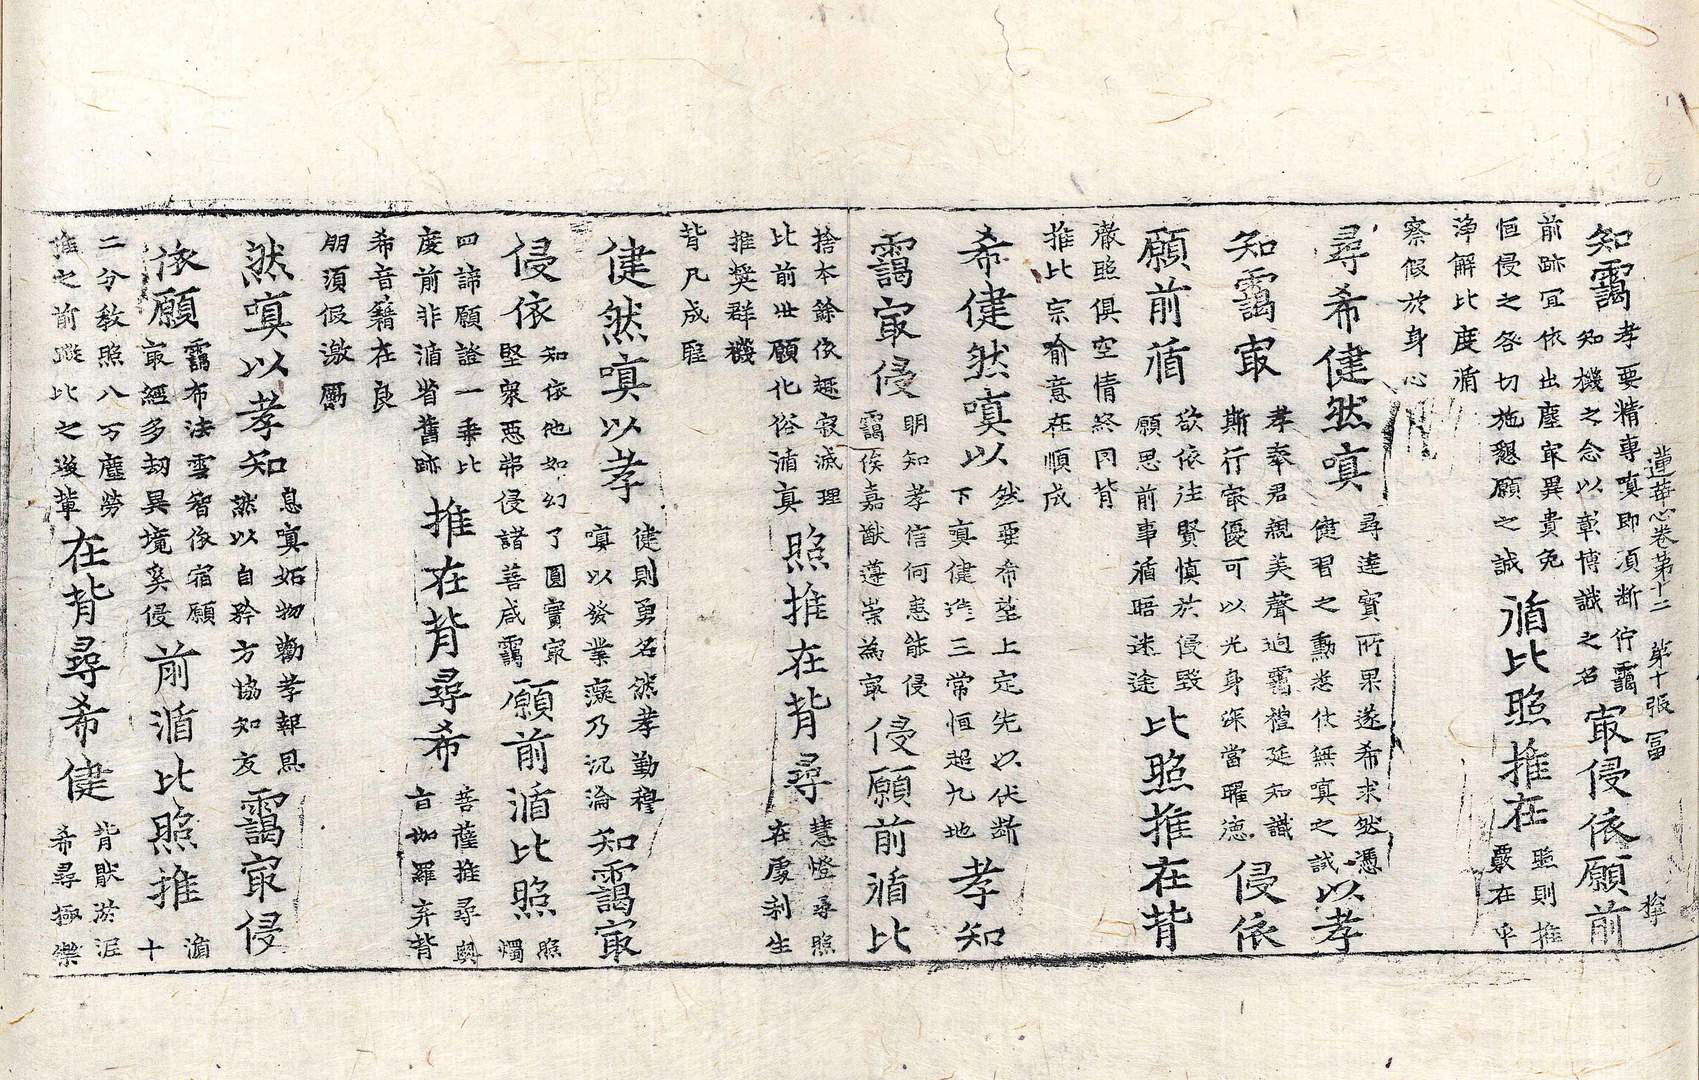 蓮華心卷第十二 第十張 冨
知靄
孝要精專嗔即須断佇靄
知機之念以彰博識之名
㝡侵依願前
前跡冝依出塵㝡異貴免
恒侵之咎切施懇願之誠
循比照推在
照則推
覈在乎
浄解比度循
察假於身心
尋希健然嗔
尋達實所果遂希求然憑
健習之勳悉仕無嗔之誠
以孝
知靄㝡
孝奉君親美聲逈靄禮延知識
斯行㝡優可以光身深當曜德
侵依
願前循
欲依法賢慎於侵毀
願思前事循晤迷途
比照推在背
澈照俱空情終罔背
推比宗喻意在順成
希健然嗔以
然要希望上定先以伏断
下嗔健進三常恒超九地
孝知
靄㝡侵
明知孝信何患能侵
靄俟嘉猷遵崇為㝡
侵願前循比
捨本餘依趣寂滅理
比前世願化俗循真
照推在背尋
慧燈尋照
在處利生
推獎群機
背凡成聖
健然嗔以孝
健則勇名然孝勤穆
嗔以發業癡乃沉淪
知靄㝡
侵依
知依他如幻了圓實㝡
堅衆惡弗侵諸善咸靄
願前循比照
照
燭
四諦願證一乗比
度前非循省舊跡
推在背尋希
菩薩推尋與
音伽羅弃背
希音籍在良
朋須假激厲
然嗔以孝知
息嗔妬物勸孝報恩
然以自矜方協知友
靄㝡侵
依願
靄布法雲智依宿願
㝡經多劫異境奚侵
前循比照推
循
十
二分教照八万塵勞
推之前蹤比之後輩
在背尋希健
背猒淤泥
希尋極樂